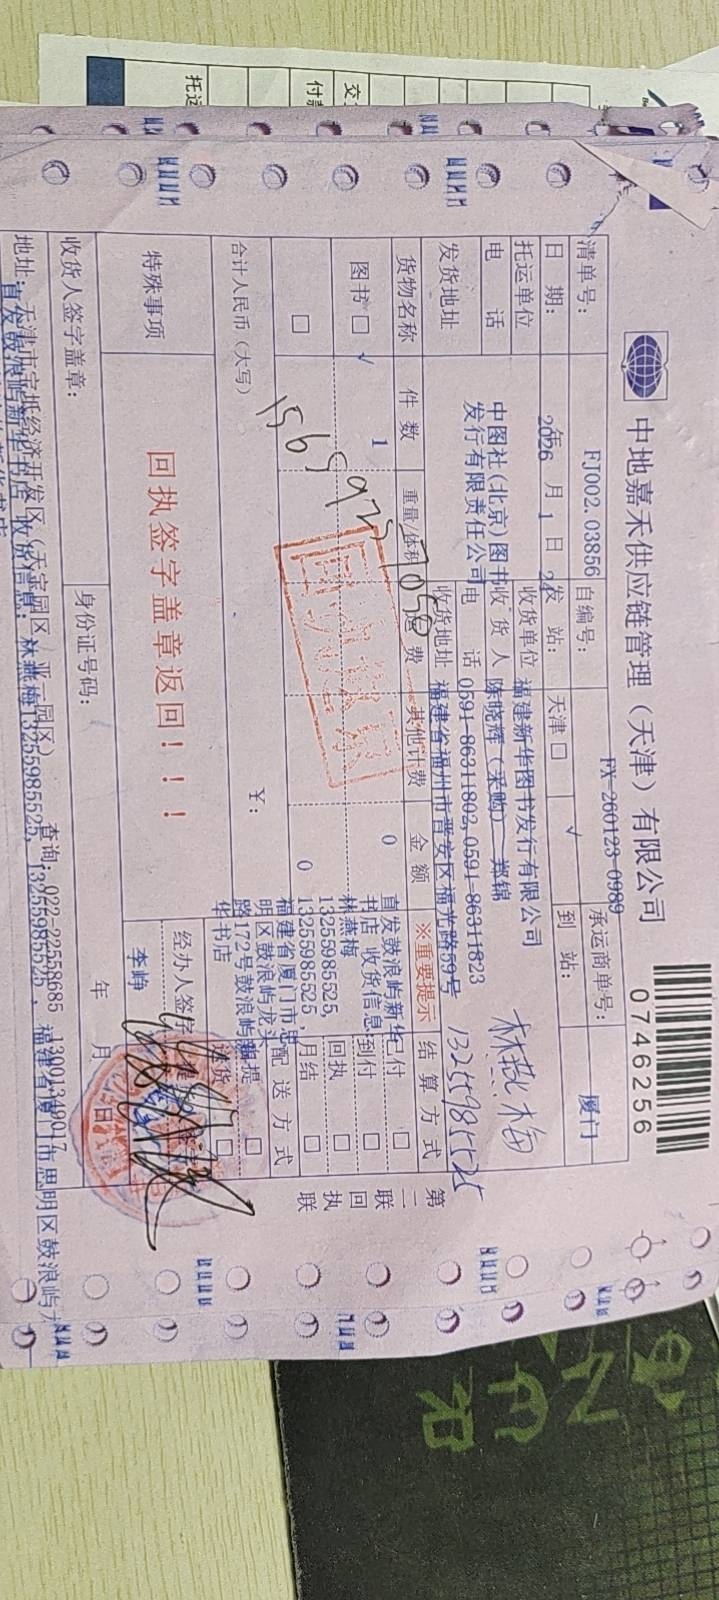 中地嘉禾供应链管理（天津）有限公司
0746256
FX-260123-0989
清单号： FJ002.03856 自编号： 承运商单号：
日 期： 2026 年 1 月 24 日 发 站： 天津 □ √ 到 站： 厦门
托运单位 中图社(北京)图书发行有限责任公司 收货单位 福建新华图书发行有限公司
林燕梅
电 话 收 货 人 陈晓辉（采购） 郑锦
电 话 0591-86311802,0591-86311823
发货地址 收货地址 福建省福州市晋安区福光路59号
13255985525
货物名称 件 数 重量/体积 运 费 其他计费 金 额 ※重要提示 结 算 方 式
图书 □ √ 1 0
□ 0
直发鼓浪屿新华书店 收货信息：林燕梅 13255985525, 13255985525, 福建省厦门市思明区鼓浪屿龙头路172号鼓浪屿新华书店
已付 □
到付 □
回执 □
月结 □
配 送 方 式
自提 □
送货 □
合计人民币（大写） ¥：
特殊事项 回执签字盖章返回！！！
经办人签字
李峥
收货人签字盖章： 身份证号码： 年 月 日
地址：天津市宝坻经济开发区（天宝园区、亚一园区） 查询：022-22558685 13001349017
直发鼓浪屿新华书店 收货信息：林燕梅13255985525, 13255985525, 福建省厦门市思明区鼓浪屿龙
第二联 回执联
托运
付款